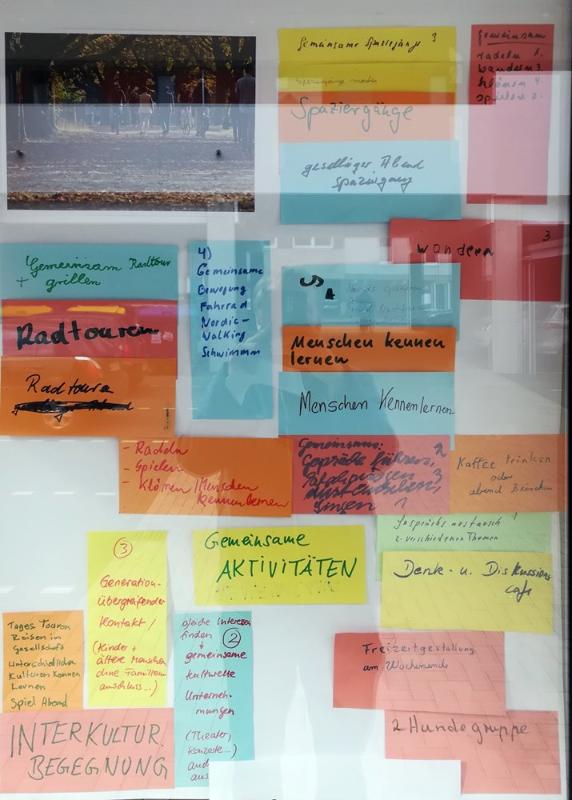 Gemeinsame Spaziergänge 3
Spaziergänge machen
Spaziergänge
geselliger Abend
Spaziergang
Gemeinsam
radeln 1.
wandern 3.
klönen 4.
spielen 2.
wandern 3
Gemeinsam Radtour
+ grillen
Radtouren
Radtouren
4)
Gemeinsame
Bewegung
Fahrrad
Nordic-
Walking
Schwimmen
Menschen kennen
lernen
Menschen Kennenlernen
- Radeln
- Spielen
- Klönen / Menschen
kennenlernen
Gemeinsam: 2
Gespräche führen,
3
singen 1
Kaffee trinken
oder
abend Bierchen
Gesprächsaustausch 1
z. verschiedenen Themen
Denk- u. Diskussions
cafe
Gemeinsame
AKTIVITÄTEN
3
Generation-
übergreifender
Kontakt /
(Kinder +
ältere Menschen
ohne Familien
anschluss...)
gleiche Interessen
finden 2
+
gemeinsame
kulturelle
Unterneh-
mungen
(Theater,
Konzerte...)
Tages Touren
Reisen in
Gesellschaft
Unterschiedlichen
Kulturen Kennen
Lernen
Spiel Abend
INTERKULTUR.
BEGEGNUNG
Freizeitgestaltung
am Wochenende
2 Hundegruppe